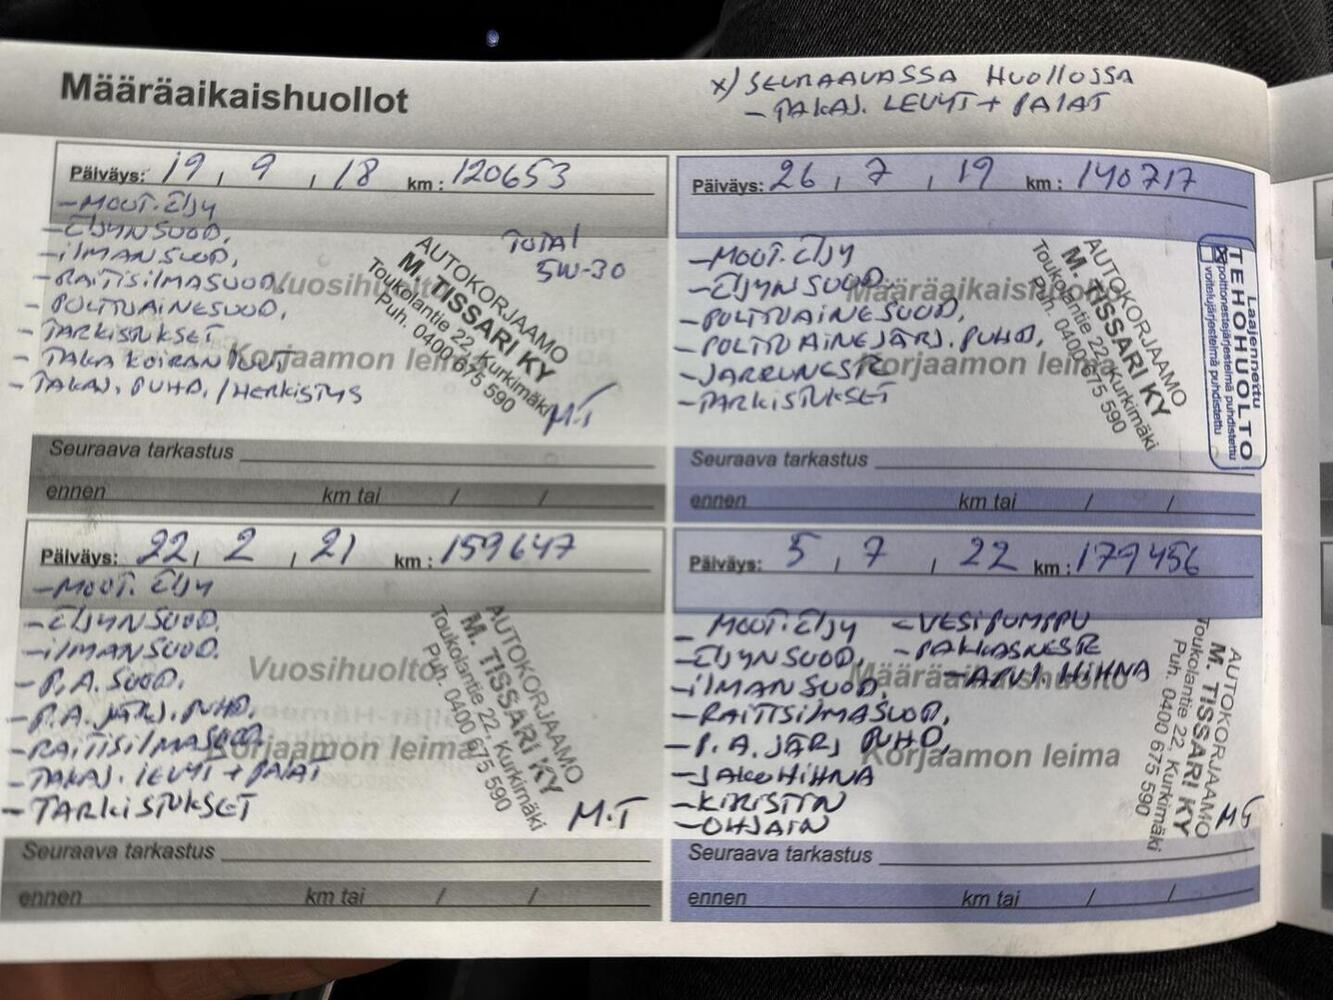 Määräaikaishuollot
x) SEURAAVASSA HUOLLOSSA
- TAKAJ. LEVYT + PALAT
Päiväys: 19, 9, 18 km: 120653
- MOOT. ÖLJY
- ÖLJYNSUOD.
- ILMANSUOD.
- RAITISILMASUOD.
- POLTTOAINESUOD.
- TARKISTUKSET
- TAKA KOIRANLUUT
- TAKAJ. PUHD. / HERKISTYS
TOTAL
5W-30
Vuosihuolto
Korjaamon leima
AUTOKORJAAMO
M. TISSARI KY
Toukolantie 22, Kurkimäki
Puh. 0400 675 590
M.T
Seuraava tarkastus
ennen km tai / /
Päiväys: 26, 7, 19 km: 140717
- MOOT. ÖLJY
- ÖLJYNSUOD.
- POLTTOAINESUOD.
- POLTTOAINEJÄRJ. PUHD.
- JARRUNESTE
- TARKISTUKSET
Määräaikaishuolto
Korjaamon leima
AUTOKORJAAMO
M. TISSARI KY
Toukolantie 22, Kurkimäki
Puh. 0400 675 590
Laajennettu
TEHOHUOLTO
polttonestejärjestelmä puhdistettu
voitelujärjestelmä puhdistettu
Seuraava tarkastus
ennen km tai / /
Päiväys: 22, 2, 21 km: 159647
- MOOT. ÖLJY
- ÖLJYNSUOD.
- ILMANSUOD.
- P.A. SUOD.
- P.A. JÄRJ. PUHD.
- RAITISILMASUOD.
- TAKAJ. LEVYT + PALAT
- TARKISTUKSET
Vuosihuolto
Korjaamon leima
AUTOKORJAAMO
M. TISSARI KY
Toukolantie 22, Kurkimäki
Puh. 0400 675 590
M.T
Seuraava tarkastus
ennen km tai / /
Päiväys: 5, 7, 22 km: 179456
- MOOT. ÖLJY - VESIPUMPPU
- ÖLJYNSUOD. - PAKKASNESTE
- ILMANSUOD. - APUL. HIHNA
- RAITISILMASUOD.
- P.A. JÄRJ PUHD.
- JAKOHIHNA
- KIRISTIN
- OHJAIN
Määräaikaishuolto
Korjaamon leima
AUTOKORJAAMO
M. TISSARI KY
Toukolantie 22, Kurkimäki
Puh. 0400 675 590
MT
Seuraava tarkastus
ennen km tai / /